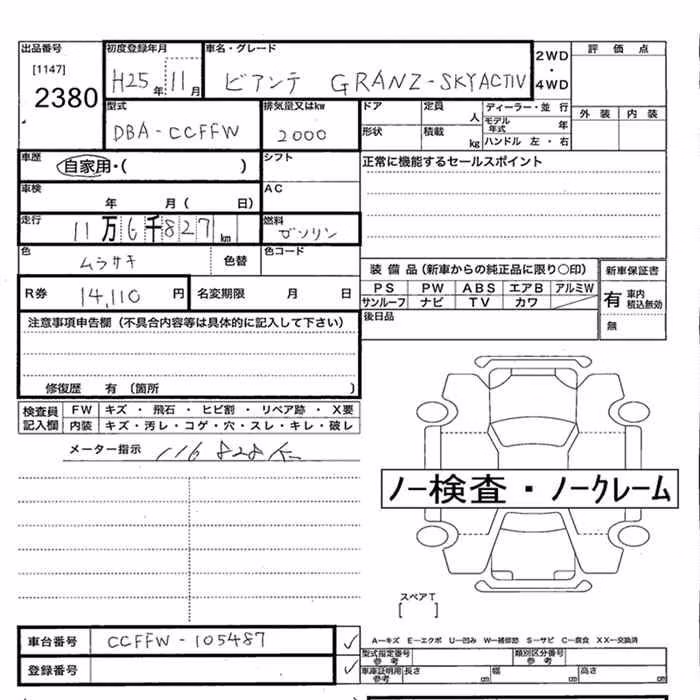 出品番号 初度登録年月 車名・グレード 2WD 評価点
[1147] H25年 11月 ビアンテ GRANZ-SKYACTIV ・
2380 4WD
型式 排気量又はkw ドア 定員 人 ディーラー・並 行 外装 内装
DBA-CCFFW 2000 形状 積載 kg モデル年式 年
ハンドル 左・右
車歴 自家用・( ) シフト 正常に機能するセールスポイント
車検 年 月( 日) AC
走行 11万6千827km 燃料 ガソリン
色 ムラサキ 色替 色コード 装備品(新車からの純正品に限り○印) 新車保証書
R券 14,110円 名変期限 月 日 PS PW ABS エアB アルミW 有 車内積込無効
サンルーフ ナビ TV カワ
注意事項申告欄(不具合内容等は具体的に記入して下さい) 後日品 無
修復歴 有(箇所 )
検査員 FW キズ・飛石・ヒビ割・リペア跡・X要
記入欄 内装 キズ・汚レ・コゲ・穴・スレ・キレ・破レ
メーター指示 116828K
ノー検査・ノークレーム
スペアT
[ ]
車台番号 CCFFW-105487 ✓ A−キズ E−エクボ U−凹み W−補修跡 S−サビ C−腐食 XX−交換済
型式指定番号 参考 類別区分番号 参考
登録番号 ✓ 車庫証明用 参考 長さ cm 幅 cm 高さ cm